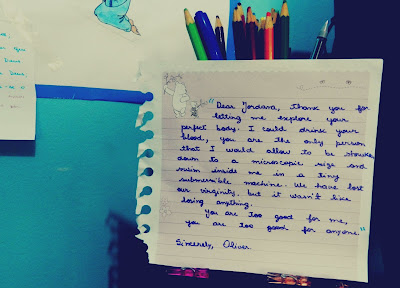 "Dear Jordana, thank you for
letting me explore your
perfect body. I could drink your
blood, you are the only person
that I would allow to be shrunk
down to a microscopic size and
swim inside me in a tiny
submersible machine. We have lost
our virginity but it wasn't like
losing anything.
You are too good for me,
you are too good for anyone"
Sincerely, Oliver.